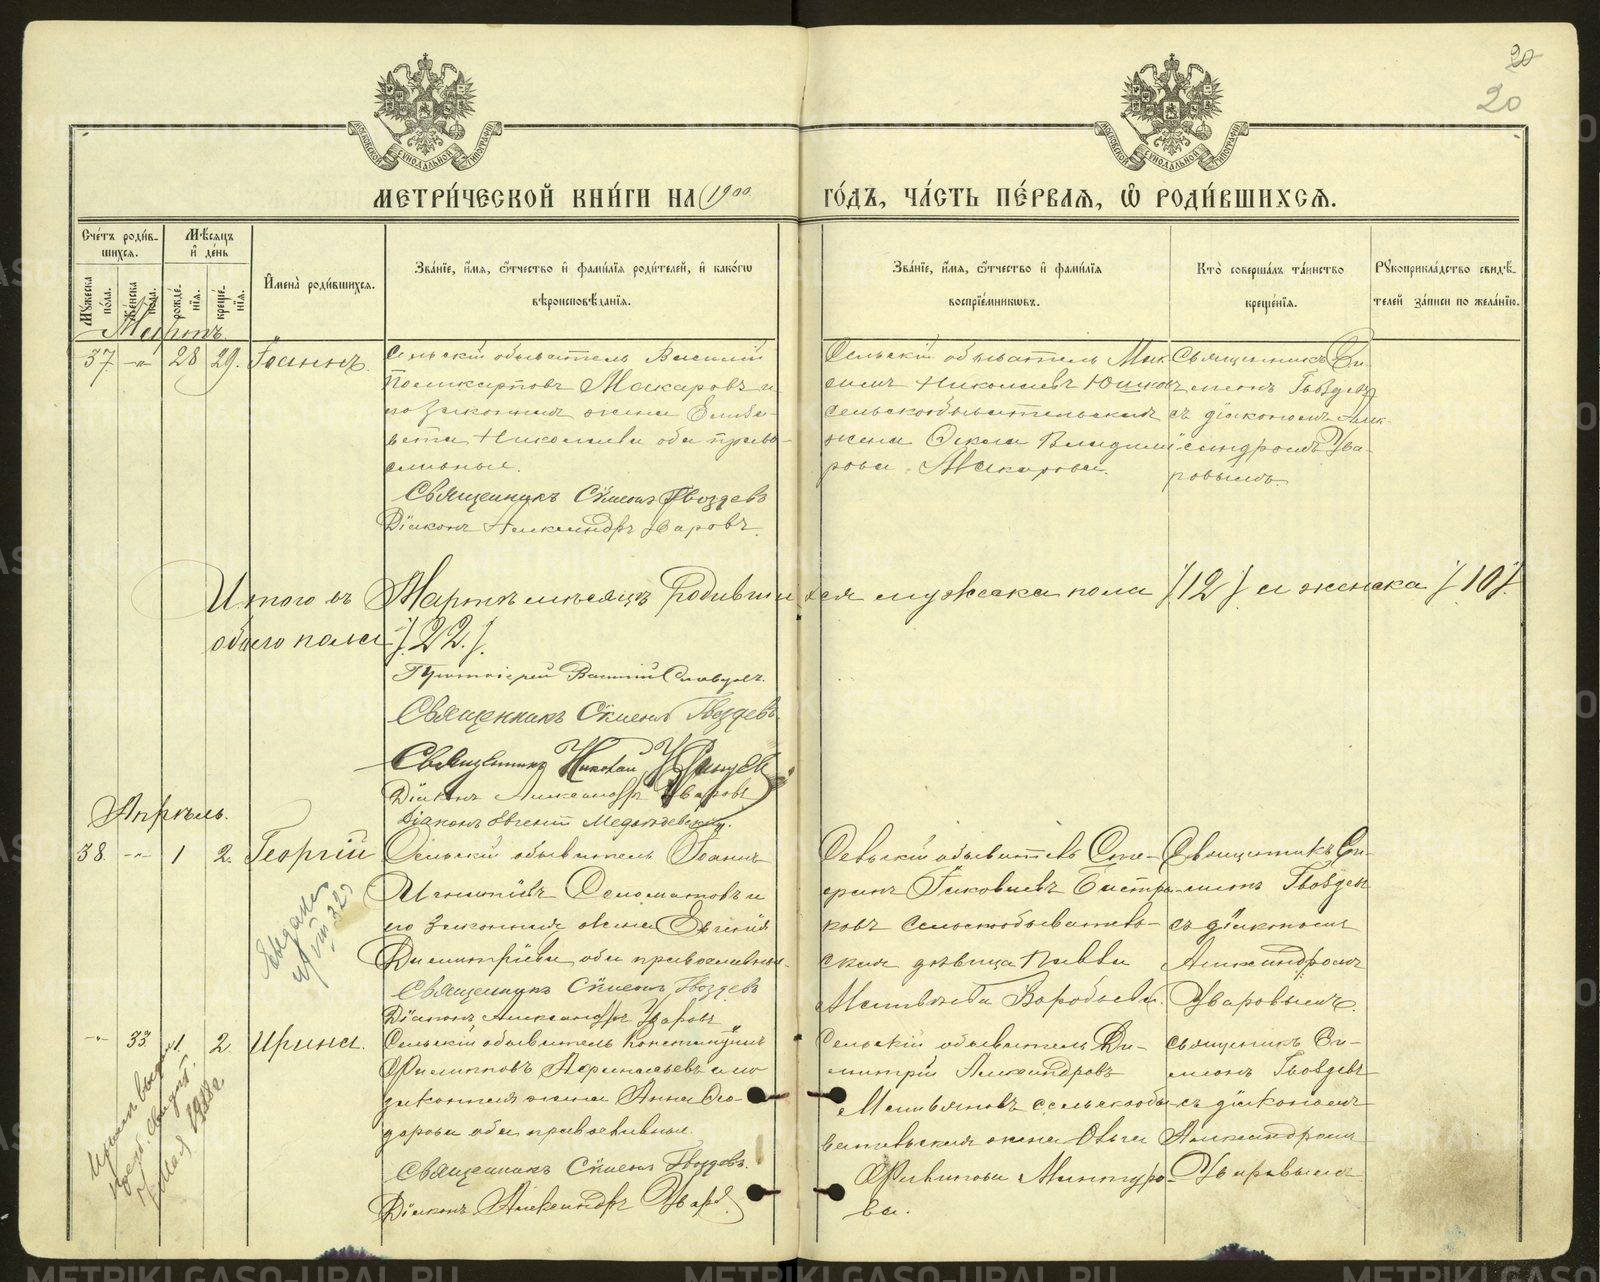 20
20
МЕТРИ́ЧЕСКОЙ КНИ́ГИ НА 1900 ГО́ДЪ, ЧА́СТЬ ПЕ́РВАЯ, Ѡ РОДИ́ВШИХСЯ.
Сче́тъ роди́вшихся.
Мѣ́сяцъ и де́нь
Мꙋ́жеска по́ла.
Же́нска по́ла.
рожде́нїя.
креще́нїя.
Имена̀ роди́вшихся.
Зва́нїе, и́мя, ѻ́тчество и фами́лїя роди́телей, и како́гѡ вѣроисповѣ́данїя.
Зва́нїе, и́мя, ѻ́тчество и фами́лїя воспрїе́мникѡвъ.
Кто̀ соверша́лъ та́инство креще́нїя.
Рꙋкоприкла́дство свидѣ́телей за́писи по жела́нїю.
Мартъ
37 -"- 28 29. Іоаннъ.
Сельскій обыватель Василій
Поликарповъ Макаровъ и
его законная жена Елиза-
вета Николаева оба право-
славные.
Священникъ Симеонъ Гвоздевъ
Діаконъ Александръ Уваровъ.
Сельскій обыватель
Николаевъ
сельскообывательская
жена Владими-
рова Макарова.
Священникъ Си-
меонъ Гвоздевъ
съ діакономъ Алек-
сандромъ Ува-
ровымъ.
Итого въ Мартѣ мѣсяцѣ родившихся мужеска пола /12/ и женска /10/.
обоего пола /22/.
Протоіерей Василій Словцовъ.
Священникъ Симеонъ Гвоздевъ
Священникъ Николай
Діаконъ Александръ Уваровъ
Діаконъ Евгеній
Апрѣль.
38. -"- 1 2. Георгій
Сельскій обыватель Іоаннъ
и
его законная жена Евгенія
Димитріева, оба православные.
Священникъ Симеонъ Гвоздевъ
Діаконъ Александръ Уваровъ
Сельскій обыватель Сте-
фанъ Іаковлевъ Быстро-
ковъ сельскообыватель-
ская дѣвица
Матвѣева Воробьева.
Священникъ Си-
меонъ Гвоздевъ
съ діакономъ
Александромъ
Уваровымъ.
-"- 33 1. 2. Ирина.
Сельскій обыватель Константинъ
Филипповъ Афанасьевъ и его
законная жена Анна Ѳео-
дорова оба православные.
Священникъ Симеонъ Гвоздевъ.
Діаконъ Александръ Уваровъ
Сельскій обыватель Ди-
митрій Александровъ
сельскообы-
вательская жена Ольга
Филиппова
ва.
священникъ Си-
меонъ Гвоздевъ
съ діакономъ
Александромъ
Уваровымъ
METRIKI.GASO-URAL.RU